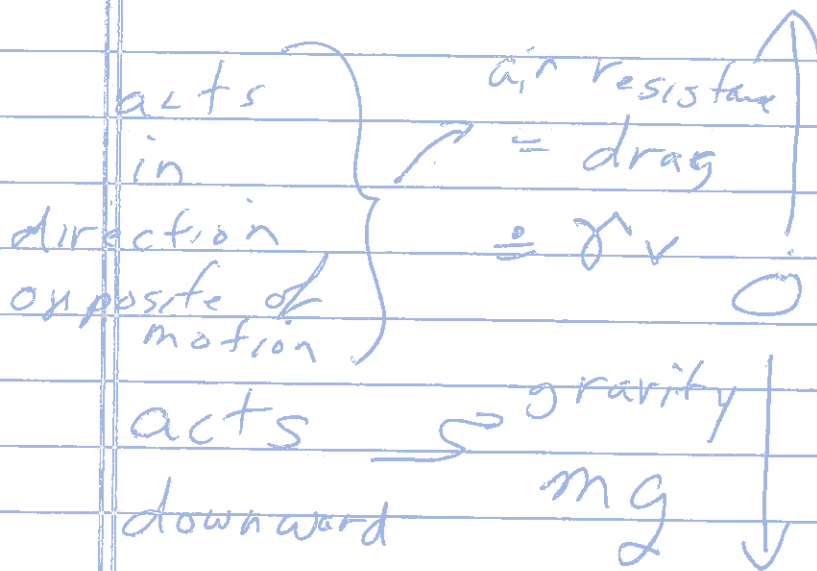 acts
in
direction
opposite of
motion
air resistance
= drag
≐ γv
acts
downward
gravity
mg